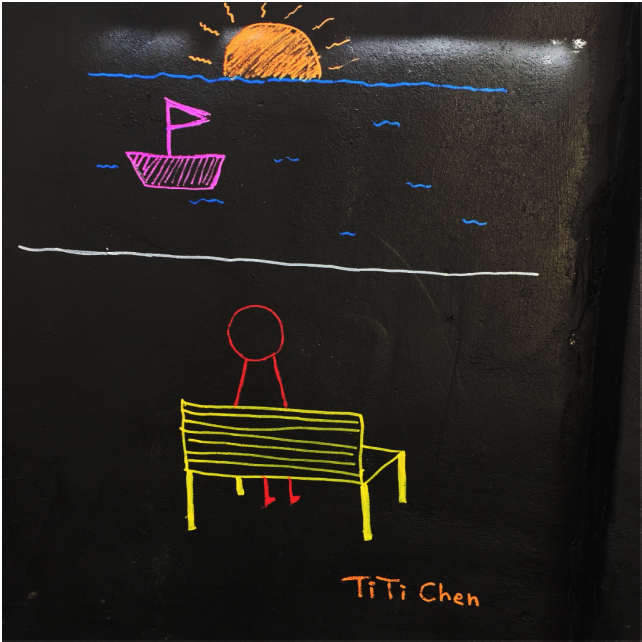 TiTi Chen